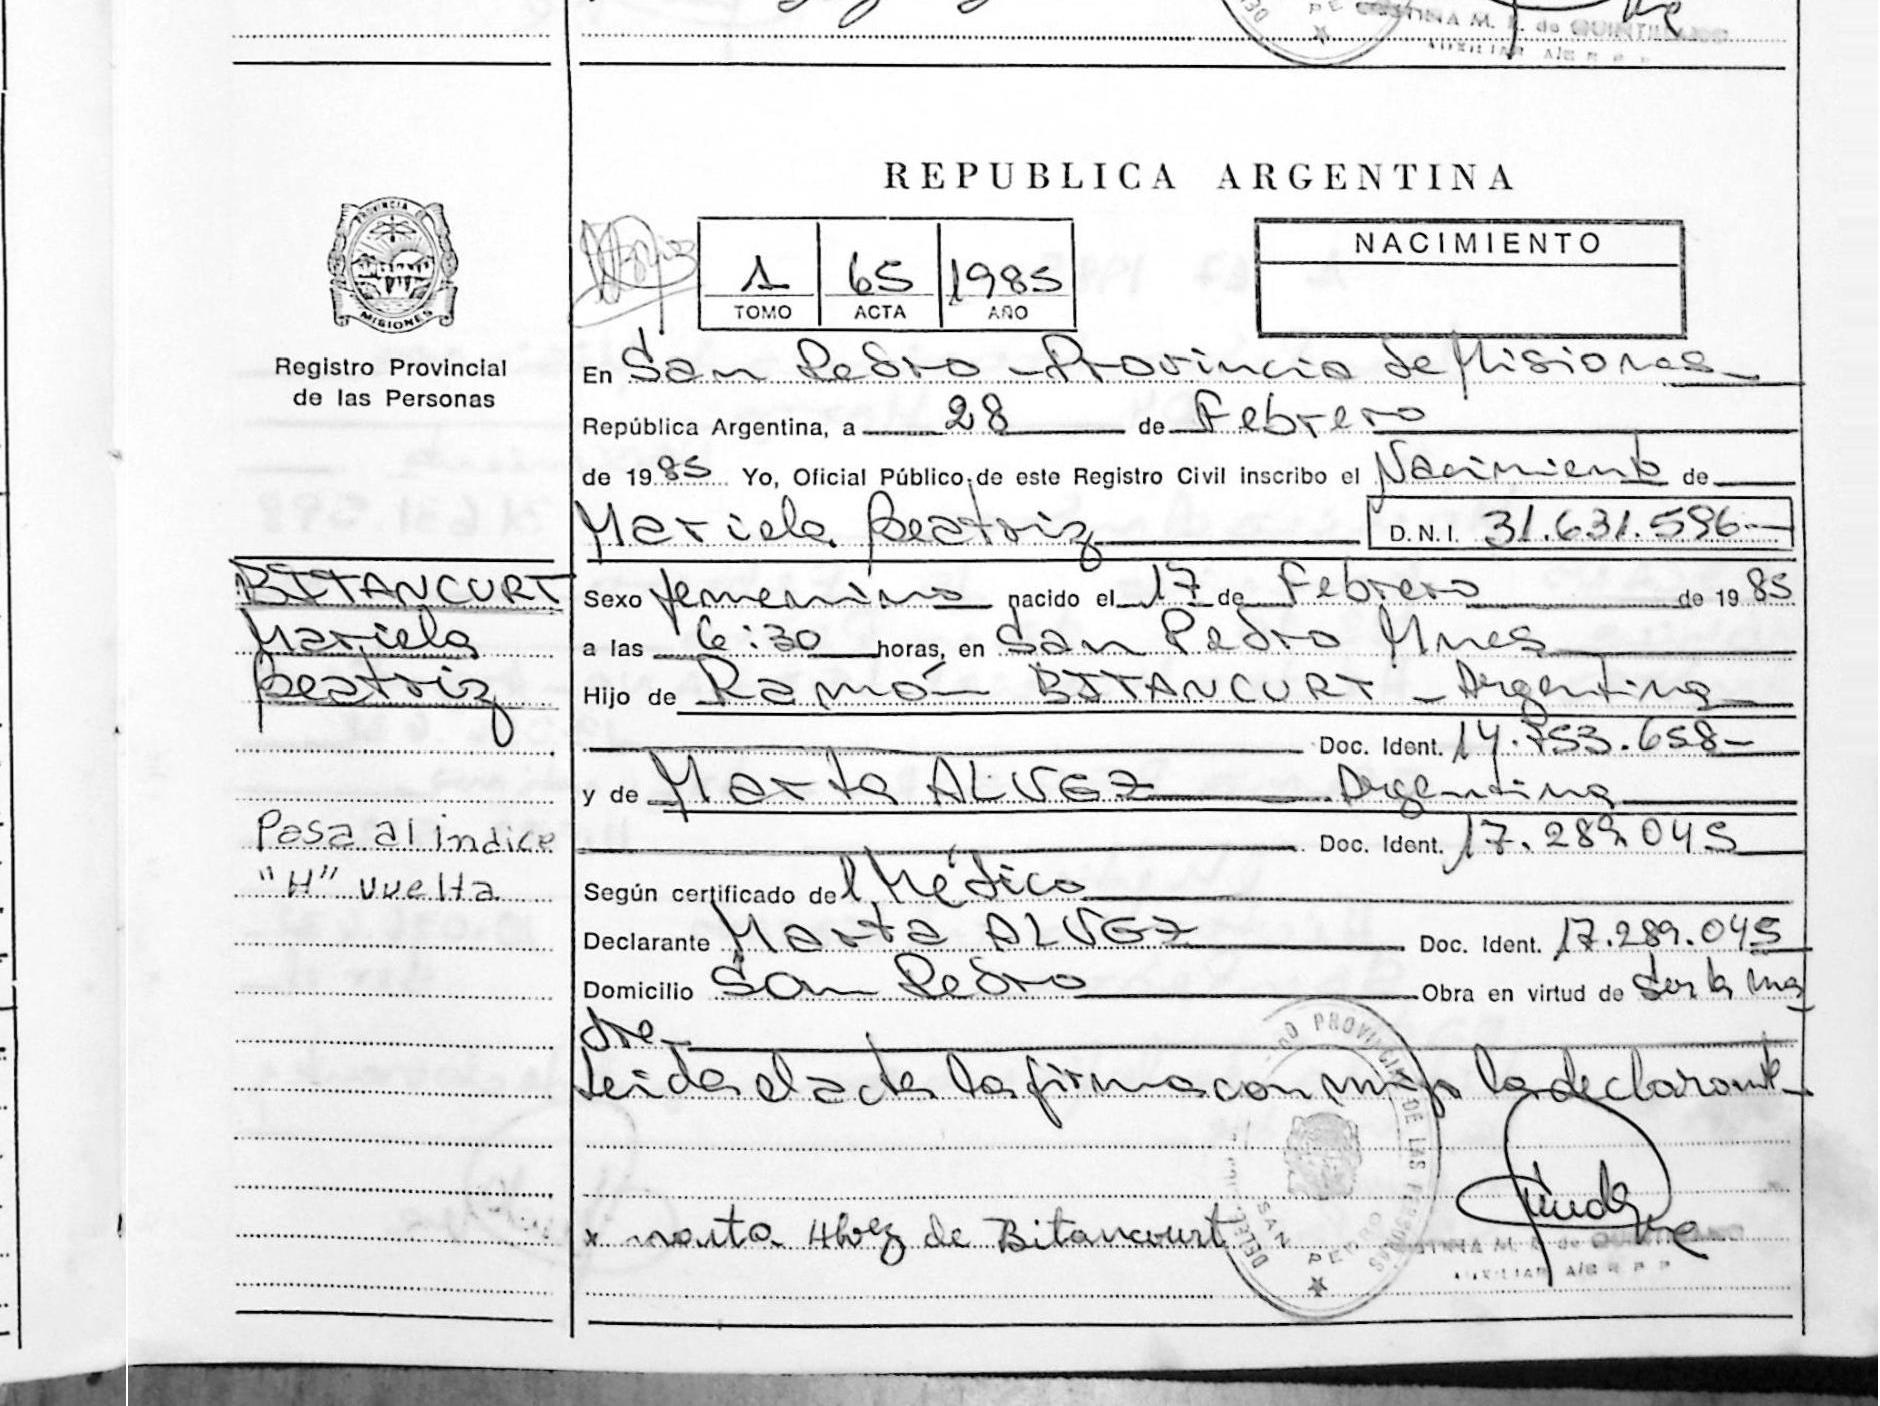 CRISTINA M. E. de QUINTILIANO
AUXILIAR A/C R. P. P.
REPUBLICA ARGENTINA
PROVINCIA
MISIONES
Registro Provincial
de las Personas
1 65 1985
TOMO ACTA AÑO
NACIMIENTO
En San Pedro - Provincia de Misiones
República Argentina, a 28 de Febrero
de 1985 Yo, Oficial Público de este Registro Civil inscribo el Nacimiento de
Mariela Beatriz D.N.I. 31.631.596
BITANCURT
Mariela
Beatriz
Sexo femenino nacido el 17 de Febrero de 1985
a las 6:30 horas, en San Pedro Mnes
Hijo de Ramón BITANCURT - Argentina
Doc. Ident. 14.753.658-
y de Marta ALVEZ Argentina
Doc. Ident. 17.289.045
Pasa al indice
"H" vuelta
Según certificado del Médico
Declarante Marta ALVEZ Doc. Ident. 17.289.045
Domicilio San Pedro Obra en virtud de ser la ma
dre-
Leida el acta la firma conmigo la declarante-
x marta Alvez de Bitancourt
PROVINCIAL DE LAS PERSONAS
SAN PEDRO
AUXILIAR A/C R. P. P.